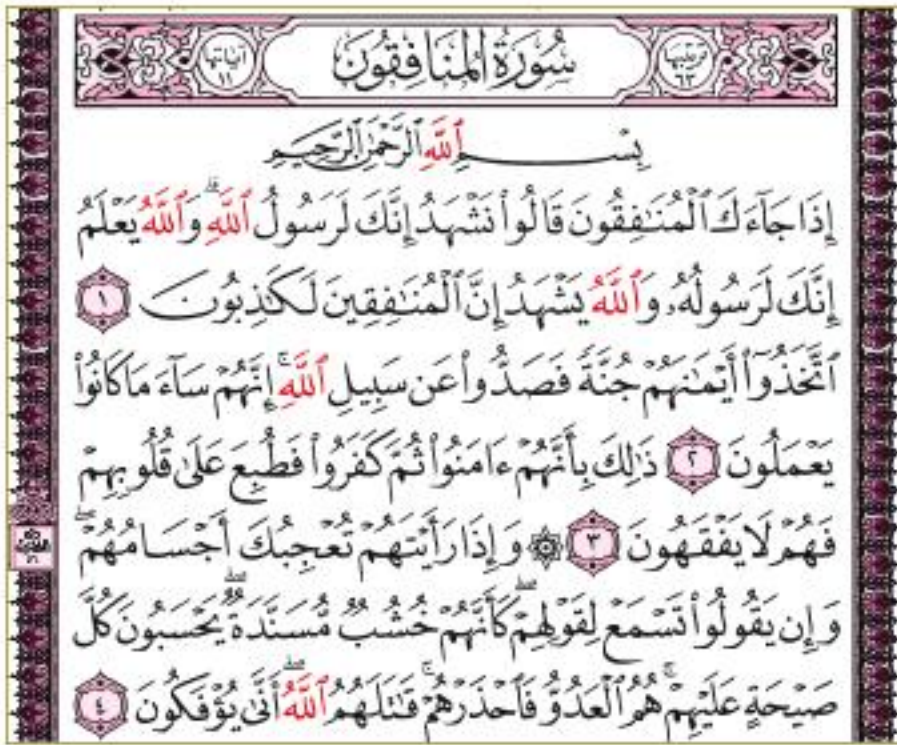 ترتيبها ٦٣ سُورَةُ الْمُنَافِقُونَ آياتها ١١
بِسْمِ ٱللَّهِ ٱلرَّحْمَٰنِ ٱلرَّحِيمِ
إِذَا جَآءَكَ ٱلْمُنَٰفِقُونَ قَالُوا۟ نَشْهَدُ إِنَّكَ لَرَسُولُ ٱللَّهِ ۗ وَٱللَّهُ يَعْلَمُ
إِنَّكَ لَرَسُولُهُۥ وَٱللَّهُ يَشْهَدُ إِنَّ ٱلْمُنَٰفِقِينَ لَكَٰذِبُونَ ١
ٱتَّخَذُوٓا۟ أَيْمَٰنَهُمْ جُنَّةً فَصَدُّوا۟ عَن سَبِيلِ ٱللَّهِ ۚ إِنَّهُمْ سَآءَ مَا كَانُوا۟
يَعْمَلُونَ ٢ ذَٰلِكَ بِأَنَّهُمْ ءَامَنُوا۟ ثُمَّ كَفَرُوا۟ فَطُبِعَ عَلَىٰ قُلُوبِهِمْ
فَهُمْ لَا يَفْقَهُونَ ٣ ۞ وَإِذَا رَأَيْتَهُمْ تُعْجِبُكَ أَجْسَامُهُمْ ۖ
وَإِن يَقُولُوا۟ تَسْمَعْ لِقَوْلِهِمْ ۖ كَأَنَّهُمْ خُشُبٌ مُّسَنَّدَةٌ ۖ يَحْسَبُونَ كُلَّ
صَيْحَةٍ عَلَيْهِمْ ۚ هُمُ ٱلْعَدُوُّ فَٱحْذَرْهُمْ ۚ قَٰتَلَهُمُ ٱللَّهُ ۖ أَنَّىٰ يُؤْفَكُونَ ٤